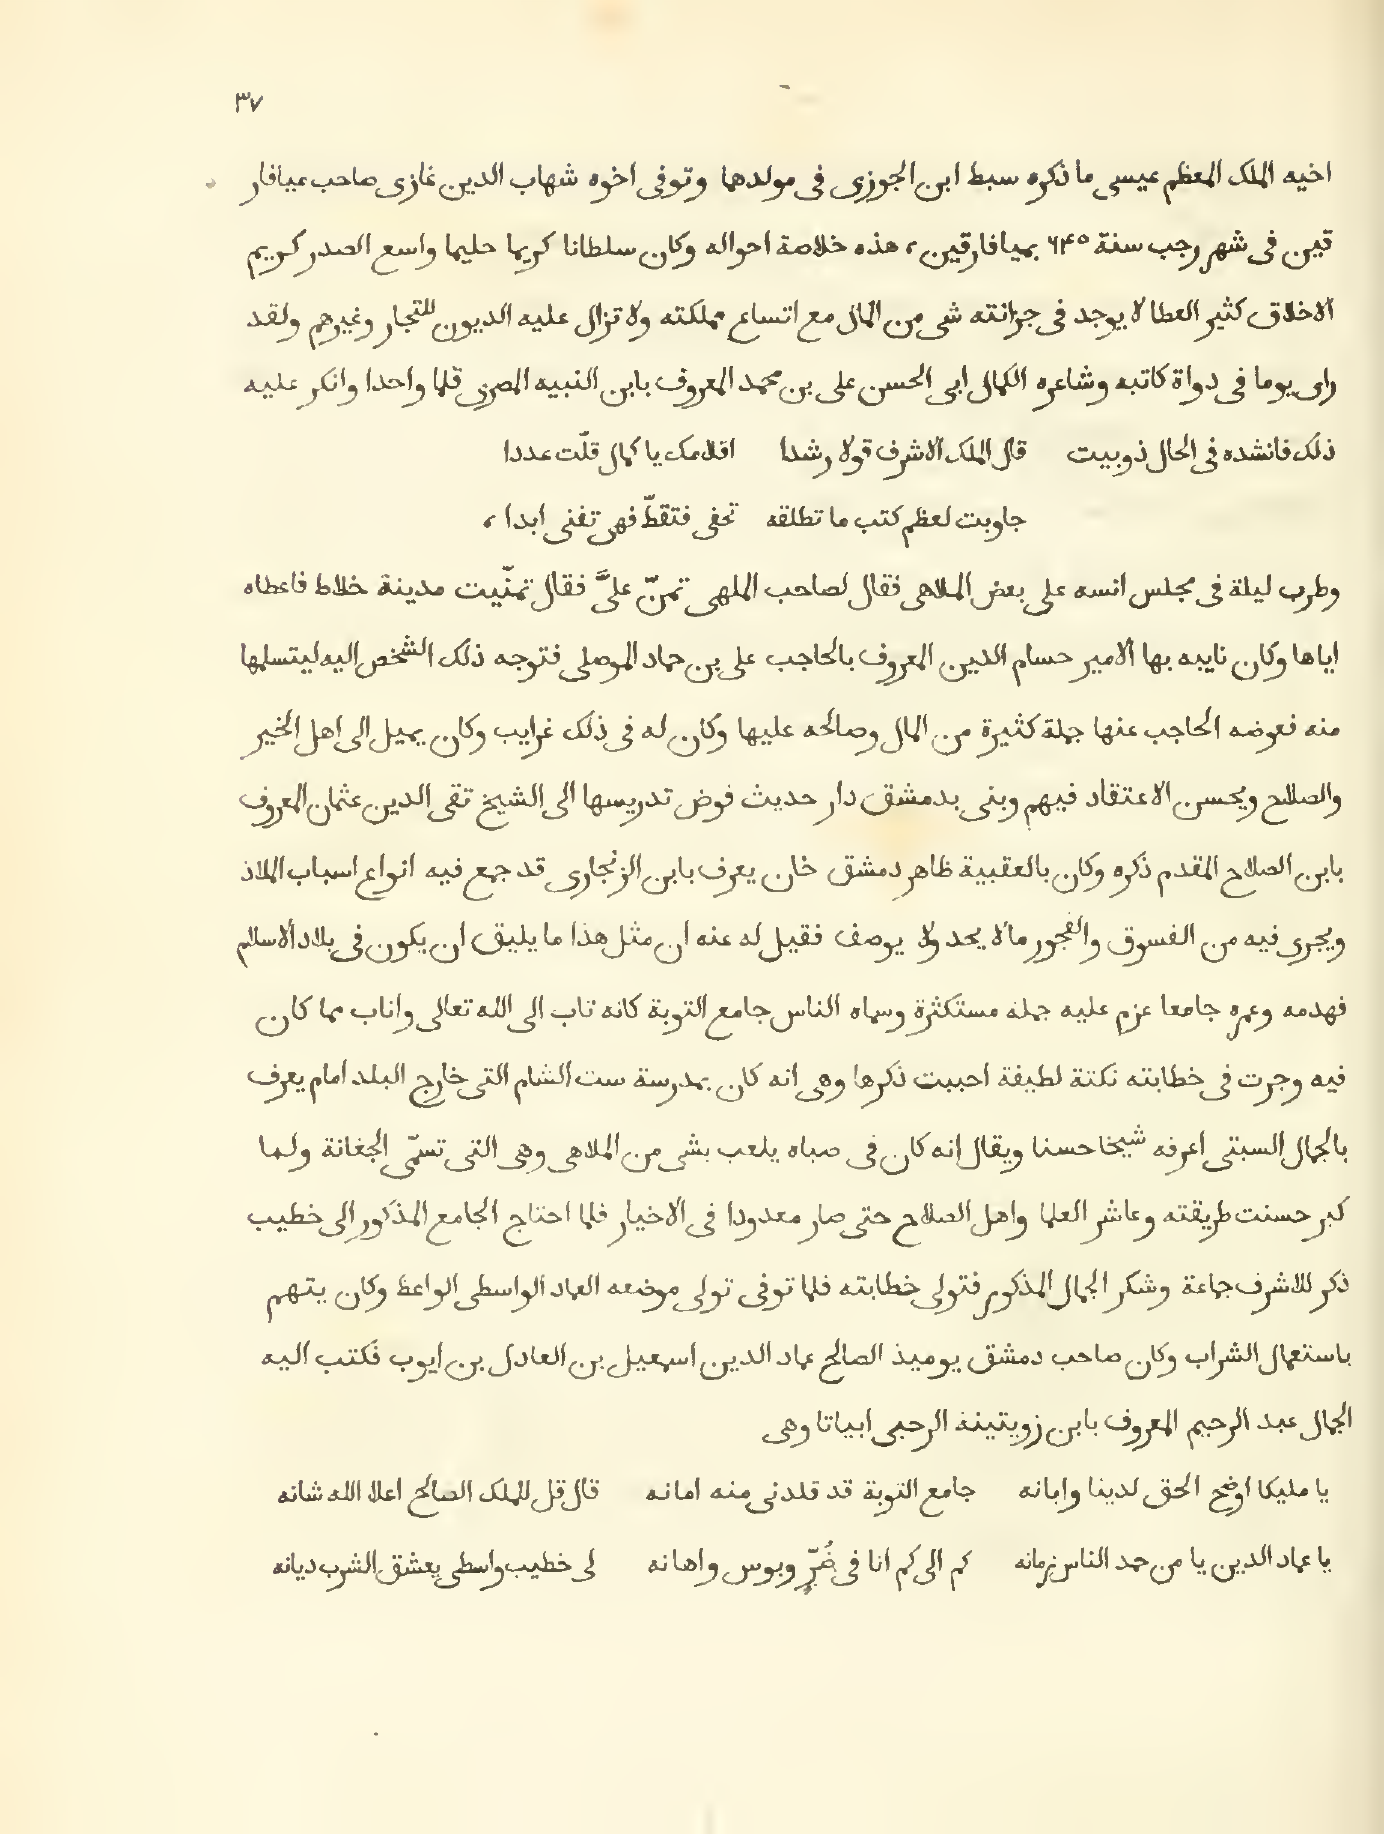 ٣٧
اخيه الملك المعظم عيسى ما ذكره سبط ابن الجوزى فى مولدهما وتوفى اخوه شهاب الدين غازى صاحب ميافار
قين فى شهر رجب سنة ٦٤٥ بميافارقين، هذه خلاصة احواله وكان سلطانا كريما حليما واسع الصدر كريم
الاخلاق كثير العطا لا يوجد فى خزانته شى من المال مع اتساع مملكته ولا تزال عليه الديون للتجار وغيرهم ولقد
راى يوما فى دواة كاتبه وشاعره الكمال ابى الحسن على بن محمد المعروف بابن النبيه المصرى قلما واحدا وانكر عليه
ذلك فانشده فى الحال ذوبيت قال الملك الاشرف قولا رشدا اقلامك يا كمال قلّت عددا
جاوبت لعظم كتب ما تطلقه تحفى فتقطّ فهى تفنى ابدا،
وطرب ليلة فى مجلس انسه على بعض الملاهى فقال لصاحب الملهى تمنّ علىَّ فقال تمنّيت مدينة خلاط فاعطاه
اياها وكان نايبه بها الامير حسام الدين المعروف بالحاجب على بن حماد الموصلى فتوجه ذلك الشخص اليه ليتسلمها
منه فعوضه الحاجب عنها جملة كثيرة من المال وصالحه عليها وكان له فى ذلك غرايب وكان يميل الى اهل الخير
والصلاح ويحسن الاعتقاد فيهم وبنى بدمشق دار حديث فوض تدريسها الى الشيخ تقى الدين عثمان المعروف
بابن الصلاح المقدم ذكره وكان بالعقيبة ظاهر دمشق خان يعرف بابن الزنجارى قد جمع فيه انواع اسباب الملاذ
ويجرى فيه من الفسوق والفجور مالا يحد ولا يوصف فقيل له عنه ان مثل هذا ما يليق ان يكون فى بلاد الاسلام
فهدمه وعمره جامعا عزم عليه جملة مستكثرة وسماه الناس جامع التوبة كانه تاب الى الله تعالى واناب مما كان
فيه وجرت فى خطابته نكتة لطيفة احببت ذكرها وهى انه كان بمدرسة ست الشام التى خارج البلد امام يعرف
بالجمال السبتى اعرفه شيخا حسنا ويقال انه كان فى صباه يلعب بشى من الملاهى وهى التى تسمّى الجغانة ولما
كبر حسنت طريقته وعاشر العلما واهل الصلاح حتى صار معدودا فى الاخيار فلما احتاج الجامع المذكور الى خطيب
ذكر للاشرف جماعة وشكر الجمال المذكور فتولى خطابته فلما توفى تولى موضعه العماد الواسطى الواعظ وكان يتهم
باستعمال الشراب وكان صاحب دمشق يوميذ الصالح عماد الدين اسمعيل بن العادل بن ايوب فكتب اليه
الجمال عبد الرحيم المعروف بابن زويتينة الرحبى ابياتا وهى
يا مليكا اوضح الحق لدينا وابانه جامع التوبة قد قلدنى منه امانه قال قل للملك الصالح اعلا الله شانه
يا عماد الدين يا من حمد الناس زمانه كم الى كم انا فى ضُرّ وبوس واهانه لى خطيب واسطى يعشق الشرب ديانه